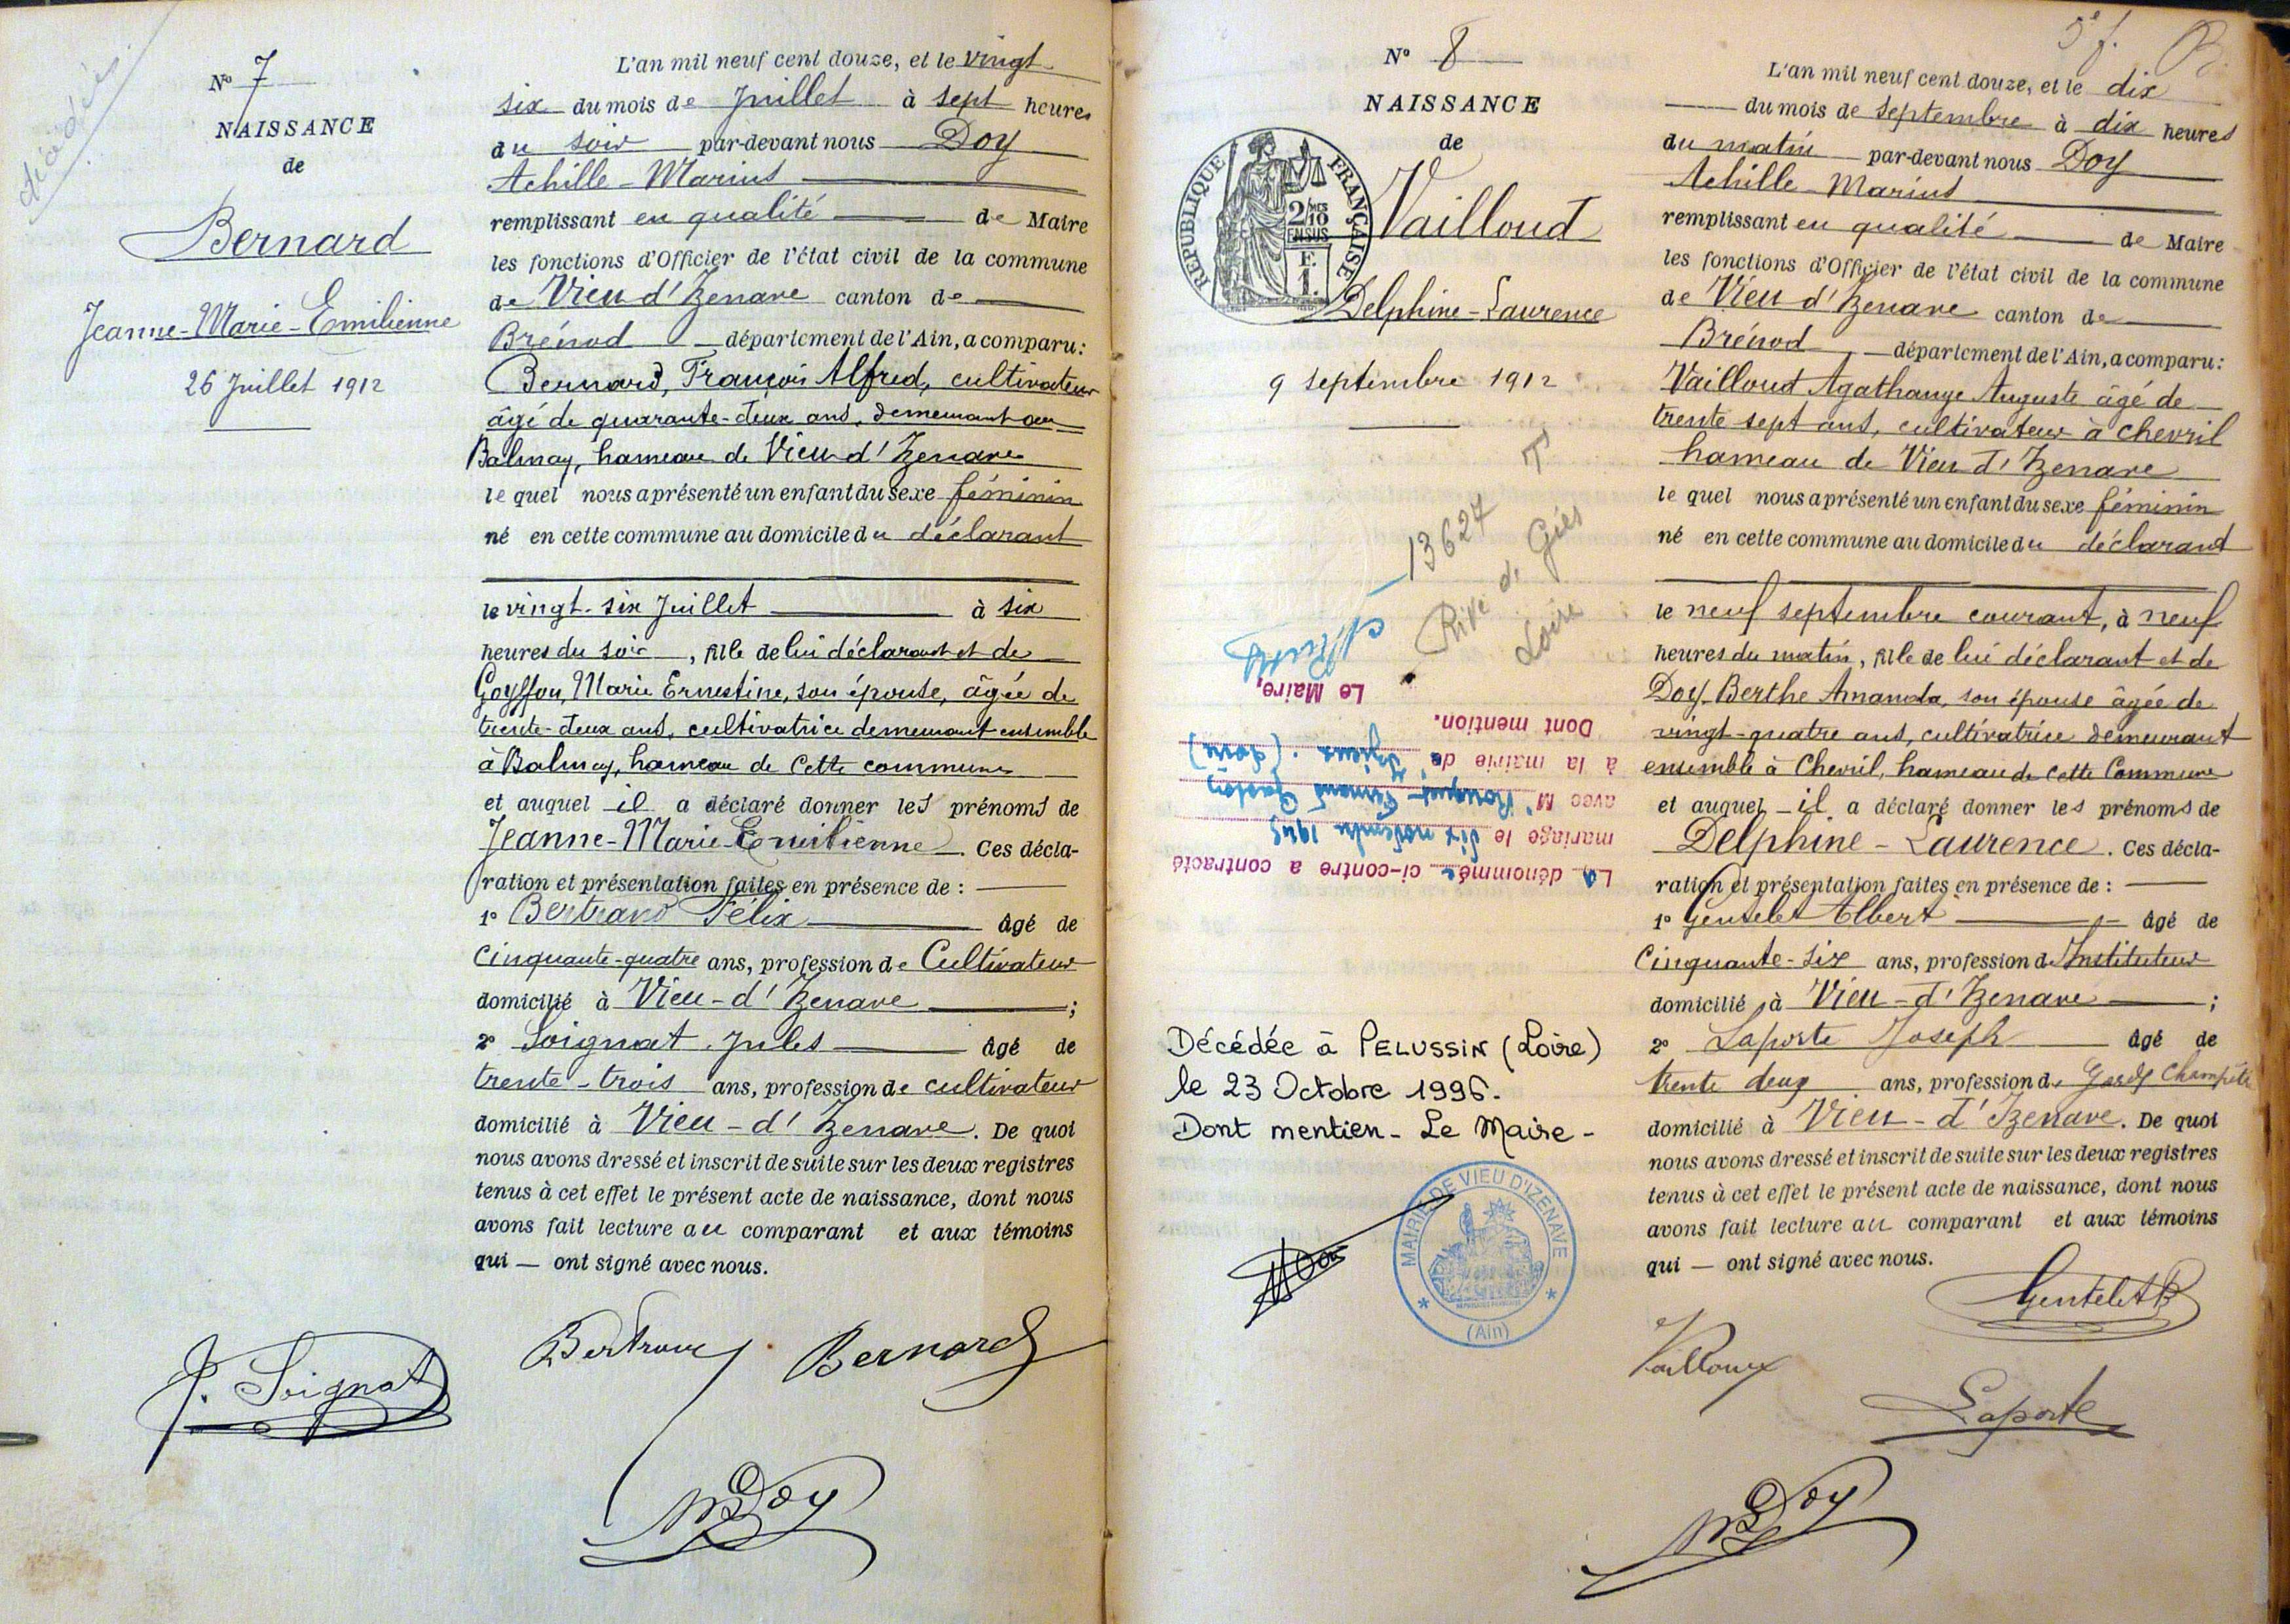 décédée
Nº 7
NAISSANCE
de
Bernard
Jeanne-Marie-Emilienne
26 Juillet 1912
L'an mil neuf cent douze, et le vingt-
six du mois de Juillet à sept heures
du soir par-devant nous Doy
Achille-Marius
remplissant en qualité de Maire
les fonctions d'Officier de l'état civil de la commune
de Vieu d'Izenave canton de
Brénod département de l'Ain, a comparu :
Bernard, François Alfred, cultivateur
âgé de quarante-deux ans, demeurant au
Balmay, hameau de Vieu d'Izenave
lequel nous a présenté un enfant du sexe féminin
né en cette commune au domicile du déclarant
le vingt-six Juillet à six
heures du soir, fille de lui déclarant et de
Goyffon, Marie Ernestine, son épouse, âgée de
trente-deux ans, cultivatrice demeurant ensemble
à Balmay, hameau de cette commune
et auquel il a déclaré donner les prénoms de
Jeanne-Marie-Emilienne. Ces décla-
ration et présentation faites en présence de :
1º Bertrand Félix âgé de
cinquante-quatre ans, profession de Cultivateur
domicilié à Vieu-d'Izenave ;
2º Soignat Jules âgé de
trente-trois ans, profession de cultivateur
domicilié à Vieu-d'Izenave. De quoi
nous avons dressé et inscrit de suite sur les deux registres
tenus à cet effet le présent acte de naissance, dont nous
avons fait lecture au comparant et aux témoins
qui — ont signé avec nous.
Bertrand Bernard
J. Soignat
M Doy
5e f.
Nº 8
NAISSANCE
de
REPUBLIQUE FRANÇAISE
2/10 EN SUS
F.
1.
Vailloud
Delphine-Laurence
9 septembre 1912
13627
Rive de Giers
Loire
La dénommée ci-contre a contracté
mariage le dix novembre 1945
avec M. Fernand Gaston
à la mairie de Izieux (Loire)
Dont mention.
Le Maire,
Décédée à PELUSSIN (Loire)
le 23 Octobre 1996.
Dont mention - Le Maire -
MAIRIE DE VIEU D'IZENAVE
(Ain)
L'an mil neuf cent douze, et le dix
du mois de septembre à dix heures
du matin par-devant nous Doy
Achille Marius
remplissant en qualité de Maire
les fonctions d'Officier de l'état civil de la commune
de Vieu d'Izenave canton de
Brénod département de l'Ain, a comparu :
Vailloud Agathange Auguste âgé de
trente sept ans, cultivateur à Chevril
hameau de Vieu d'Izenave
lequel nous a présenté un enfant du sexe féminin
né en cette commune au domicile du déclarant
le neuf septembre courant, à neuf
heures du matin, fille de lui déclarant et de
Doy Berthe Amanda, son épouse âgée de
vingt-quatre ans, cultivatrice demeurant
ensemble à Chevril, hameau de cette Commune
et auquel il a déclaré donner les prénoms de
Delphine-Laurence. Ces décla-
ration et présentation faites en présence de :
1º Gentelet Albert âgé de
cinquante-six ans, profession d'Instituteur
domicilié à Vieu-d'Izenave ;
2º Laporte Joseph âgé de
trente deux ans, profession de Garde Champêtre
domicilié à Vieu-d'Izenave. De quoi
nous avons dressé et inscrit de suite sur les deux registres
tenus à cet effet le présent acte de naissance, dont nous
avons fait lecture au comparant et aux témoins
qui — ont signé avec nous.
Gentelet
Vailloud
Laporte
M Doy